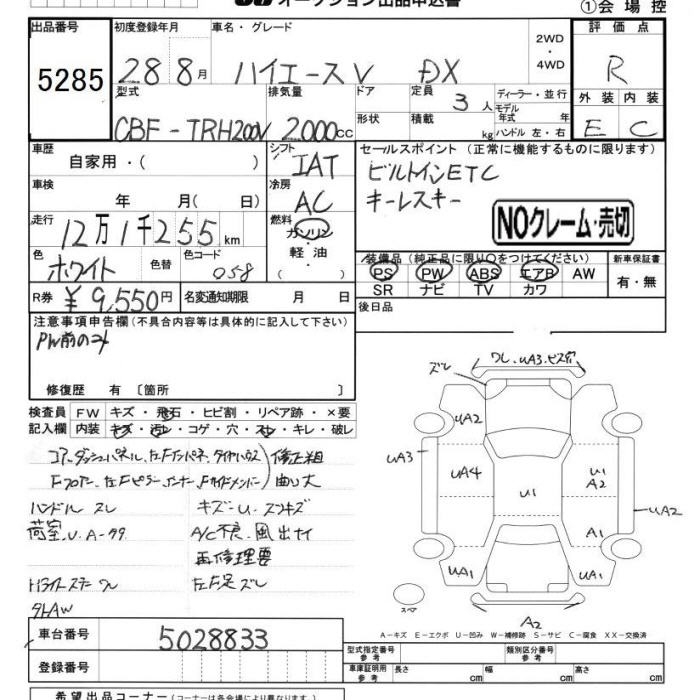 オークション出品申込書
①会場控
出品番号 初度登録年月 車名・グレード 2WD・4WD 評価点
5285 28 8月 ハイエースV DX R
型式 排気量 ドア 定員 3人 ディーラー・並行 外装 内装
CBF-TRH200V 2000cc 形状 積載 kg モデル年式 年 ハンドル 左・右 E C
車歴 自家用・( ) シフト IAT セールスポイント (正常に機能するものに限ります)
ビルトインETC
キーレスキー
車検 年 月( 日) 冷房 AC
NOクレーム・売切
走行 12万1千255km 燃料 ガソリン・軽油
色 ホワイト 色替 色コード 058
装備品(純正品に限り○をつけてください) 新車保証書
PS PW ABS エアB AW 有・無
SR ナビ TV カワ
R券 ¥9,550円 名変通知期限 月 日 後日品
注意事項申告欄(不具合内容等は具体的に記入して下さい)
PW前のみ
修復歴 有 〔箇所 〕
検査員 FW キズ・飛石・ヒビ割・リペア跡・×要
記入欄 内装 キズ・汚レ・コゲ・穴・スレ・キレ・破レ
修正粗
曲り大
ハンドル スレ キズ-U.
荷室.U.A-99 A/C不良.風出ナイ
再修理要
左F足ズレ
ズレ ワレ.UA3.
UA2
UA3
UA4 U1 U1
A2
UA2
A1
UA1 UA1
スペア
A2
A-キズ E-エクボ U-凹み W-補修跡 S-サビ C-腐食 XX-交換済
車台番号 5028833
型式指定番号 参考 類別区分番号 参考
登録番号
車庫証明用 参考 長さ cm 幅 cm 高さ cm
希望出品コーナー